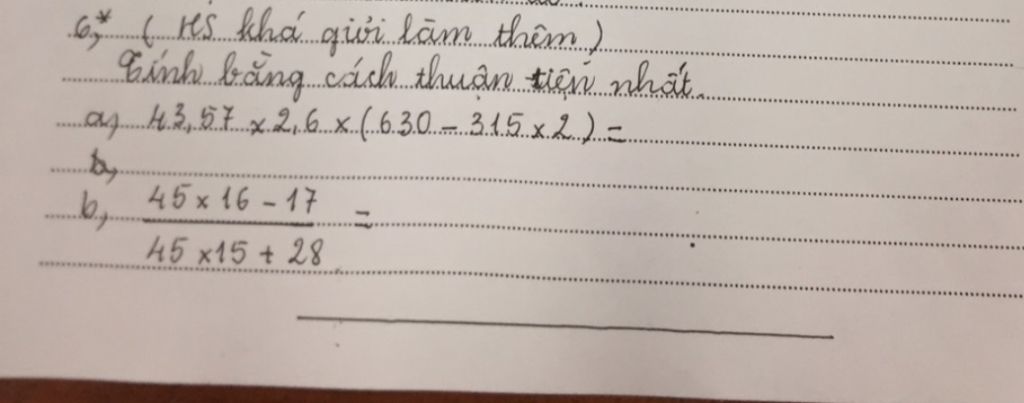 6,* ( HS khá giỏi làm thêm )
Tính bằng cách thuận tiện nhất.
a, 43,57 x 2,6 x ( 630 - 315 x 2 ) =
b,
b, 45 x 16 - 17 =
45 x 15 + 28